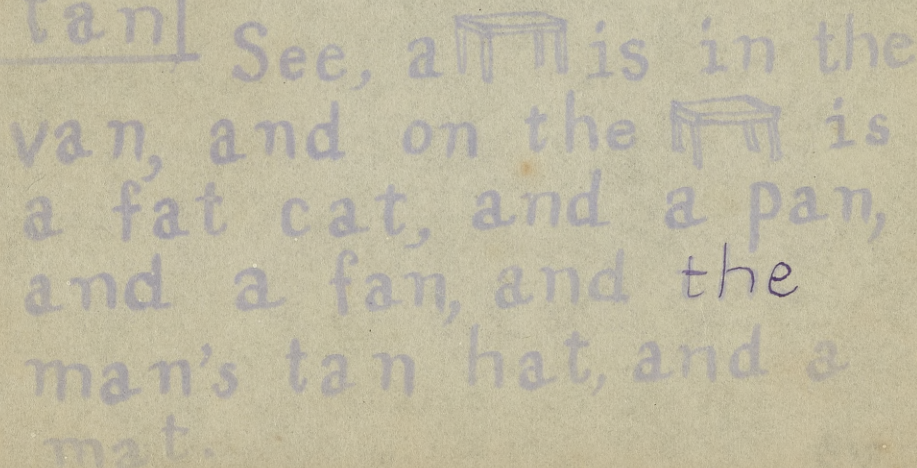 tan
See, a is in the
van, and on the is
a fat cat, and a pan,
and a fan, and the
man's tan hat, and a
mat.